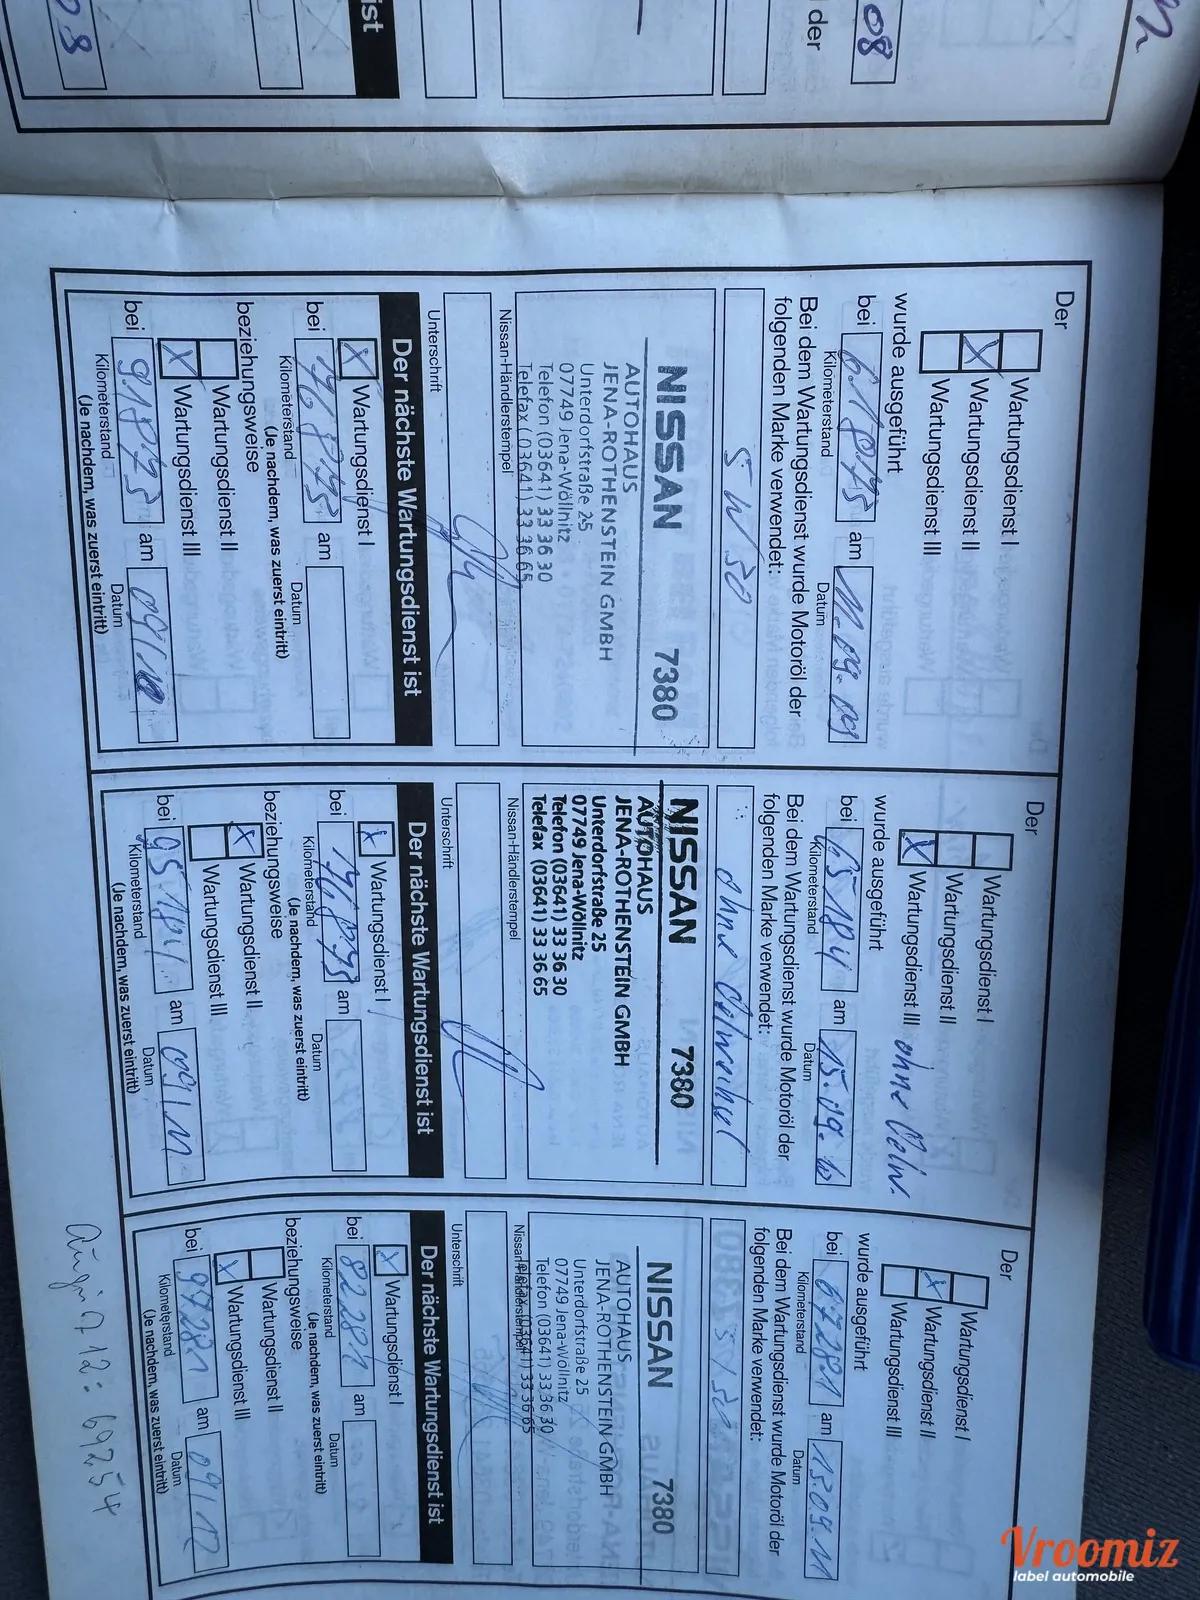 08
der
ist
Der
Wartungsdienst I
X Wartungsdienst II
Wartungsdienst III
wurde ausgeführt
bei 61875 am 11.09.09
Kilometerstand Datum
Bei dem Wartungsdienst wurde Motoröl der
folgenden Marke verwendet:
5W30
NISSAN 7380
AUTOHAUS
JENA-ROTHENSTEIN GMBH
Unterdorfstraße 25
07749 Jena-Wöllnitz
Telefon (03641) 33 36 30
Telefax (03641) 33 36 65
Nissan-Händlerstempel
Unterschrift
Der nächste Wartungsdienst ist
X Wartungsdienst I
bei 76875 am
Kilometerstand Datum
(Je nachdem, was zuerst eintritt)
beziehungsweise
Wartungsdienst II
X Wartungsdienst III
bei 91875 am 09/10
Kilometerstand Datum
(Je nachdem, was zuerst eintritt)
Der
Wartungsdienst I
Wartungsdienst II
X Wartungsdienst III ohne Oelw.
wurde ausgeführt
bei 65184 am 15.09.10
Kilometerstand Datum
Bei dem Wartungsdienst wurde Motoröl der
folgenden Marke verwendet:
ohne Oelwechsel
NISSAN 7380
AUTOHAUS
JENA-ROTHENSTEIN GMBH
Unterdorfstraße 25
07749 Jena-Wöllnitz
Telefon (03641) 33 36 30
Telefax (03641) 33 36 65
Nissan-Händlerstempel
Unterschrift
Der nächste Wartungsdienst ist
X Wartungsdienst I
bei 76875 am
Kilometerstand Datum
(Je nachdem, was zuerst eintritt)
beziehungsweise
X Wartungsdienst II
Wartungsdienst III
bei 95184 am 09/11
Kilometerstand Datum
(Je nachdem, was zuerst eintritt)
Der
Wartungsdienst I
X Wartungsdienst II
Wartungsdienst III
wurde ausgeführt
bei 67281 am 13.09.11
Kilometerstand Datum
Bei dem Wartungsdienst wurde Motoröl der
folgenden Marke verwendet:
NISSAN 7380
AUTOHAUS
JENA-ROTHENSTEIN GMBH
Unterdorfstraße 25
07749 Jena-Wöllnitz
Telefon (03641) 33 36 30
Telefax (03641) 33 36 65
Nissan-Händlerstempel
Unterschrift
Der nächste Wartungsdienst ist
X Wartungsdienst I
bei 82281 am
Kilometerstand Datum
(Je nachdem, was zuerst eintritt)
beziehungsweise
Wartungsdienst II
X Wartungsdienst III
bei 97281 am 09/12
Kilometerstand Datum
(Je nachdem, was zuerst eintritt)
August 12: 69254
Vroomiz
label automobile